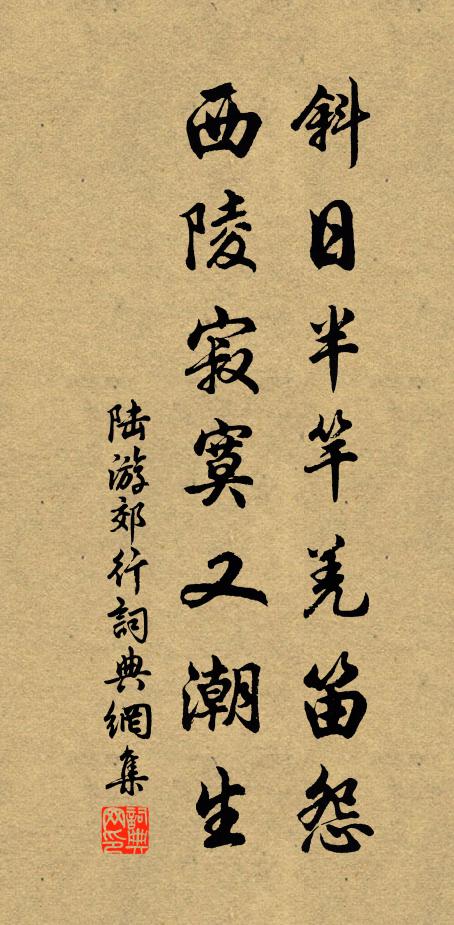 斜日半竿羌笛怨
西陵寂寞又潮生
陆游郊行詞典網集
詞典网印